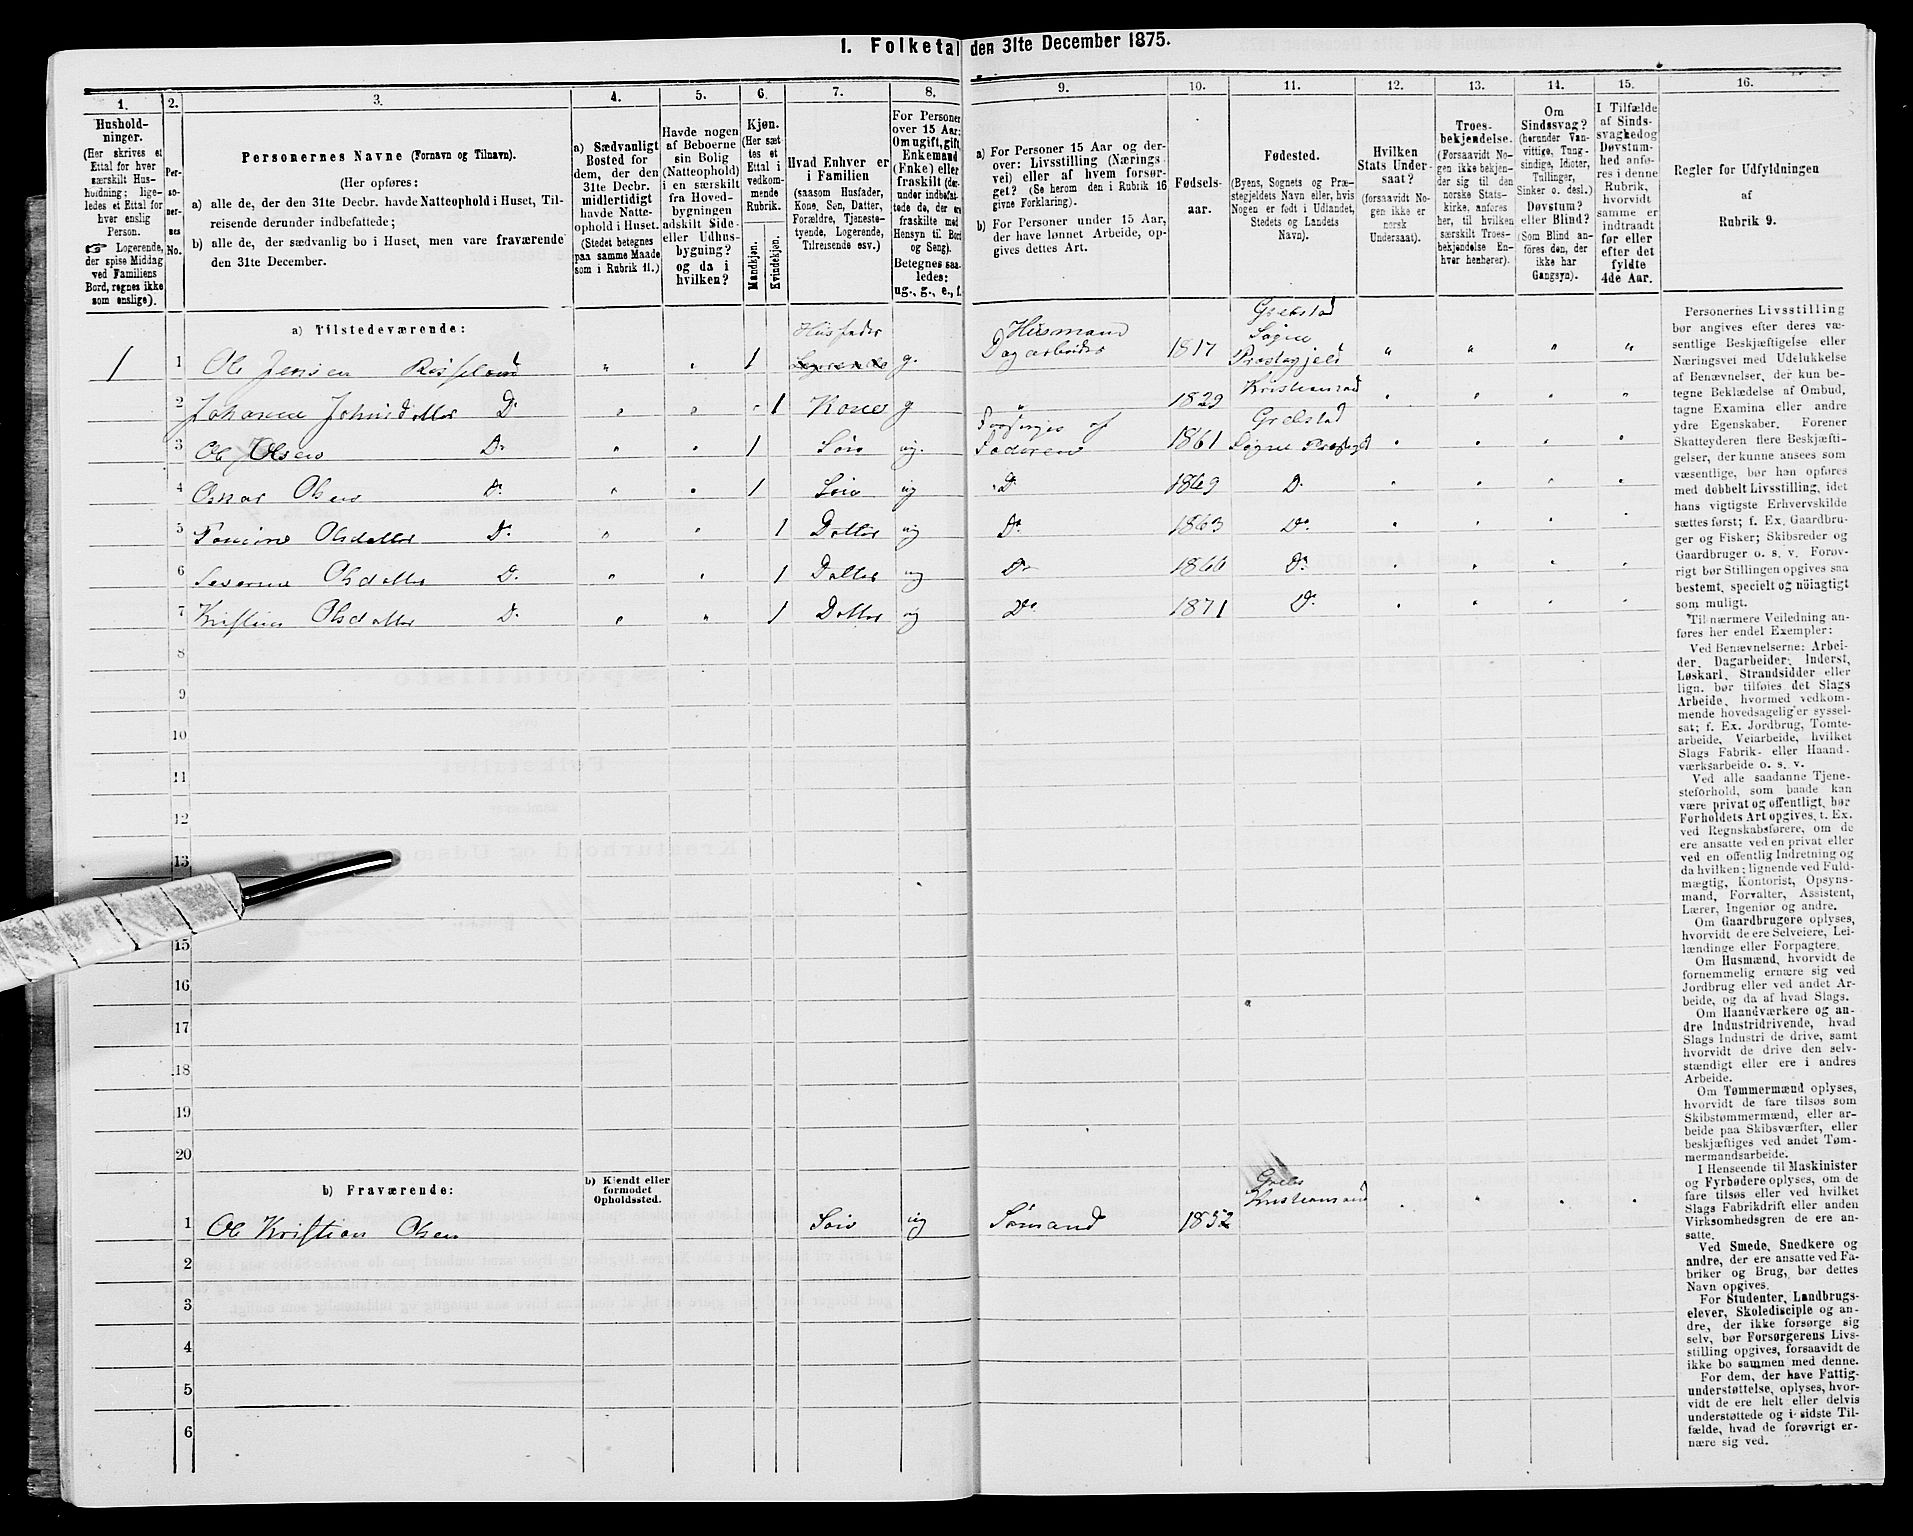 I. Folketal den 31te December 1875.
1. 2. 3. 4. 5. 6. 7. 8. 9. 10. 11. 12. 13. 14. 15. 16.
Hushold-
ninger.
(Her skrives et
Ettal for hver
særskilt Hus-
holdning; lige-
ledes et Ettal for
hver enslig
Person.
☞ Logerende,
der spise Middag
ved Familiens
Bord, regnes ikke
som enslige).
Per-
so-
ner-
nes
No.
Personernes Navne (Fornavn og Tilnavn).
(Her opføres:
a) alle de, der den 31te Decbr. havde Natteophold i Huset, Til-
reisende derunder indbefattede;
b) alle de, der sædvanlig bo i Huset, men vare fraværende
den 31te December.
a) Sædvanligt
Bosted for
dem, der den
31te Decbr.
midlertidigt
havde Natte-
ophold i Huset.
(Stedet betegnes
paa samme Maade
som i Rubrik 11.)
Havde nogen
af Beboerne
sin Bolig
(Natteophold)
i en særskilt
fra Hoved-
bygningen
adskilt Side-
eller Udhus-
bygning?
og da i
hvilken?
Kjøn.
(Her sæt-
tes et
Ettal i
vedkom-
mende
Rubrik.
Mandkjøn.
Kvindekjøn.
Hvad Enhver er
i Familien
(saasom Husfader,
Kone, Søn, Datter,
Forældre, Tjeneste-
tyende, Logerende,
Tilreisende osv.)
For Personer
over 15 Aar:
Om ugift, gift,
Enkemand
(Enke) eller
fraskilt (der-
under indbefat-
tede de, der ere
fraskilte med
Hensyn til Bord
og Seng).
Betegnes saa-
ledes:
ug., g., e., f.
a) For Personer 15 Aar og der-
over: Livsstilling (Nærings-
vei) eller af hvem forsør-
get? (Se herom den i Rubrik 16
givne Forklaring).
b) For Personer under 15 Aar,
der have lønnet Arbeide, op-
gives dettes Art.
Fødsels-
aar.
Fødested.
(Byens, Sognets og Præ-
stegjeldets Navn eller, hvis
Nogen er født i Udlandet,
Stedets og Landets
Navn).
Hvilken
Stats Under-
saat?
(forsaavidt No-
gen ikke er
norsk
Undersaat).
Troes-
bekjendelse.
(Forsaavidt No-
gen ikke bekjen-
der sig til den
norske Stats-
kirke, anføres
her, til hvilken
særskilt Troes-
bekjendelse En-
hver henhører).
Om
Sindssvag?
(herunder Van-
vittige, Tung-
sindige, Idioter,
Tullinger,
Sinker o. desl.)
Døvstum?
eller Blind?
(Som Blind an-
føres den, der
ikke har
Gangsyn).
I Tilfælde
af Sinds-
svaghed og
Døvstum-
hed anfø-
res i denne
Rubrik,
hvorvidt
samme er
indtraadt
før eller
efter det
fyldte
4de Aar.
Regler for Udfyldningen
af
Rubrik 9.
a) Tilstedeværende:
1 1 Ole Jensen Rosseland " " 1 Husfader Logerende g. Husmand Dagarbeider 1817 Grebstad Sogne Præstegjeld " " " "
2 Johanne Johnsdatter Do " " " 1 Kone g " 1829 Kristiansand " " " "
3 Ole Olsen Do " " 1 Søn ug. Forsørges af Faderen 1861 Grebstad Sogne Præstegjd " " " "
4 Osnar Olsen Do " " 1 Søn ug Do 1869 Do " " " "
5 Tomine Olsdatter Do " " 1 Datter ug Do 1863 Do " " " "
6 Severine Olsdatter Do " " 1 Datter ug Do 1866 Do " " " "
7 Kristine Olsdatter Do " " 1 Datter ug Do 1871 Do " " " "
8
9
10
11
12
13
15
16
17
18
19
20
b) Fraværende:
b) Kjendt eller
formodet
Opholdssted.
1 Ole Kristian Olsen Søn ug Sømand 1852 Kristiansand " " " "
2
3
4
5
6
Personernes Livsstilling
bør angives efter deres væ-
sentlige Beskjæftigelse eller
Næringsvei med Udelukkelse
af Benævnelser, der kun be-
tegne Beklædelse af Ombud,
tagne Examina eller andre
ydre Egenskaber. Forener
Skatteyderen flere Beskjæfti-
gelser, der kunne ansees som
væsentlige, bør han opføres
med dobbelt Livsstilling, idet
hans vigtigste Erhvervskilde
sættes først; f. Ex. Gaardbru-
ger og Fisker; Skibsreder og
Gaardbruger o. s. v. Forøv-
rigt bør Stillingen opgives saa
bestemt, specielt og nøiagtigt
som muligt.
Til nærmere Veiledning an-
føres her endel Exempler:
Ved Benævnelserne: Arbei-
der, Dagarbeider, Inderst,
Løskarl, Strandsidder eller
lign. bør tilføies det Slags
Arbeide, hvormed vedkom-
mende hovedsagelig er syssel-
sat; f. Ex. Jordbrug, Tomte-
arbeide, Veiarbeide, hvilket
Slags Fabrik- eller Haand-
værksarbeide o. s. v.
Ved alle saadanne Tjene-
steforhold, som baade kan
være privat og offentligt, bør
Forholdets Art opgives, t. Ex.
ved Regnskabsførere, om de
ere ansatte ved en privat eller
ved en offentlig Indretning og
da hvilken; lignende ved Fuld-
mægtig, Kontorist, Opsyns-
mand, Forvalter, Assistent,
Lærer, Ingeniør og andre.
Om Gaardbrugere oplyses,
hvorvidt de ere Selveiere, Lei-
lændinge eller Forpagtere.
Om Husmænd, hvorvidt de
fornemmelig ernære sig ved
Jordbrug eller ved andet Ar-
beide, og da af hvad Slags.
Om Haandværkere og an-
dre Industridrivende, hvad
Slags Industri de drive, samt
hvorvidt de drive den selv-
stændigt eller ere i andres
Arbeide.
Om Tømmermænd oplyses,
hvorvidt de fare tilsøs som
Skibstømmermænd, eller ar-
beide paa Skibsværfter, eller
beskjæftiges ved andet Tøm-
mermandsarbeide.
I Henseende til Maskinister
og Fyrbødere oplyses, om de
fare tilsøs eller ved hvilket
Slags Fabrikdrift eller anden
Virksomhedsgren de ere an-
satte.
Ved Smede, Snedkere og
andre, der ere ansatte ved Fa-
briker og Brug, bør dettes
Navn opgives.
For Studenter, Landbrugs-
elever, Skoledisciple og an-
dre, der ikke forsørge sig
selv, bør Forsørgerens Livs-
stilling opgives, forsaavidt de
ikke bo sammen med denne.
For dem, der have Fattig-
understøttelse, oplyses, hvor-
vidt de ere helt eller delvis
understøttede og i sidste Til-
fælde, hvad de forøvrigt er-
nære sig ved.